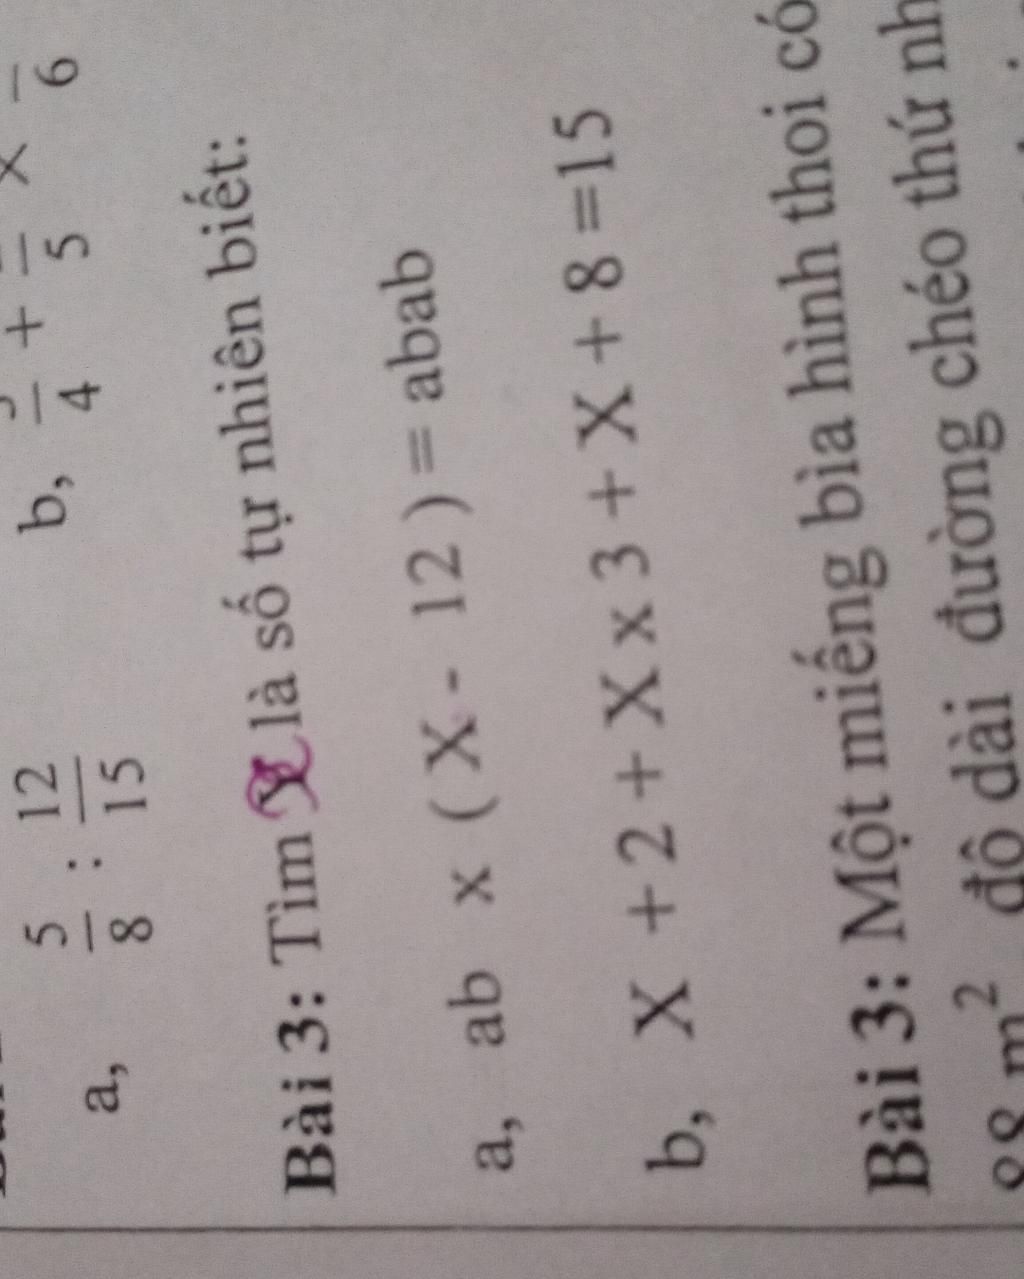 a, 5/8 : 12/15 b, /4 + /5 x /6
Bài 3: Tìm X là số tự nhiên biết:
a, ab x ( X - 12 ) = abab
b, X + 2 + X x 3 + X + 8 =15
Bài 3: Một miếng bìa hình thoi có
m² độ dài đường chéo thứ